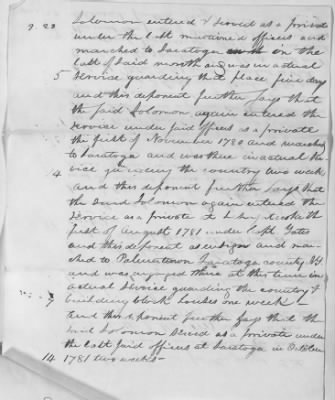 9. 23 Solomon entered & served as a private
under the last mentioned officers and
marched to Saratoga on the
last of said month and was in actual
5 service guarding that place five days
and this deponent further says that
the said Solomon again entered the
service under said officers as a private
the first of November 1780 and marched
to Saratoga and was there in actual ser
4 vice guarding the country two weeks
and this deponent further says that
the said Solomon again entered the
service as a private the
first of August 1781 under Capt Yates
and this deponent as ensign and mar
ched to Palmertown Saratoga county NY
and was engaged there at this time in
actual service guarding the country &
7 building block houses one week –
And this deponent further says that the
said Solomon served as a private under
the last said officers at Saratoga in October
14 1781 two weeks –